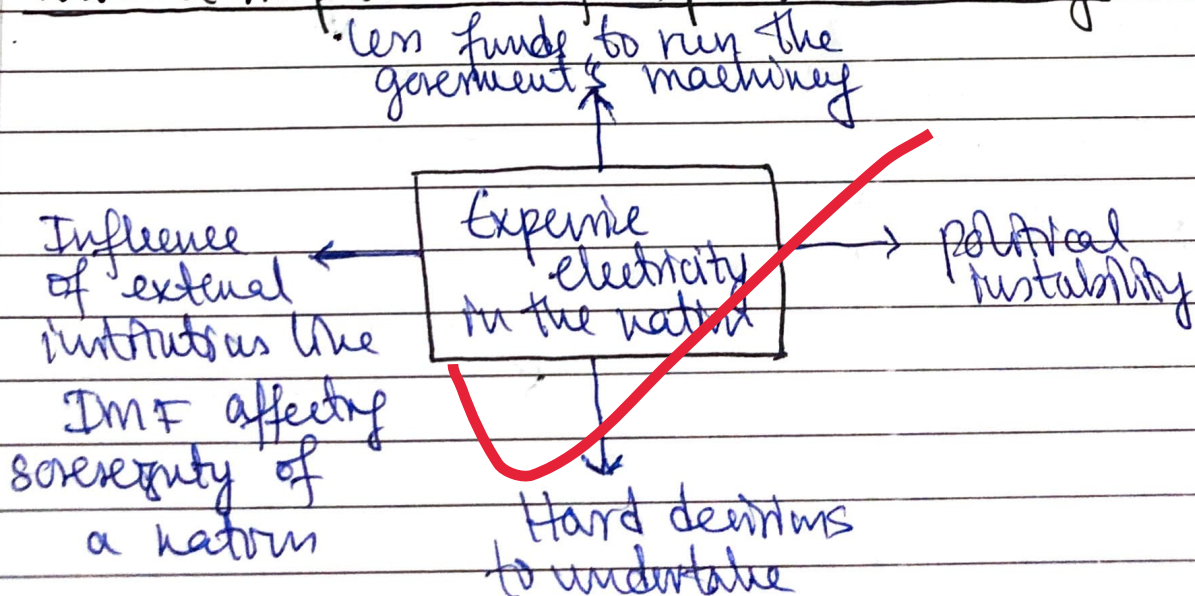 less funds to run the
goverment's machiney
Expensie
electricity
in the nation
Influence
of extenal
institutions like
IMF affecting
sovereignty of
a nation
political
instability
Hard decisions
to undertake